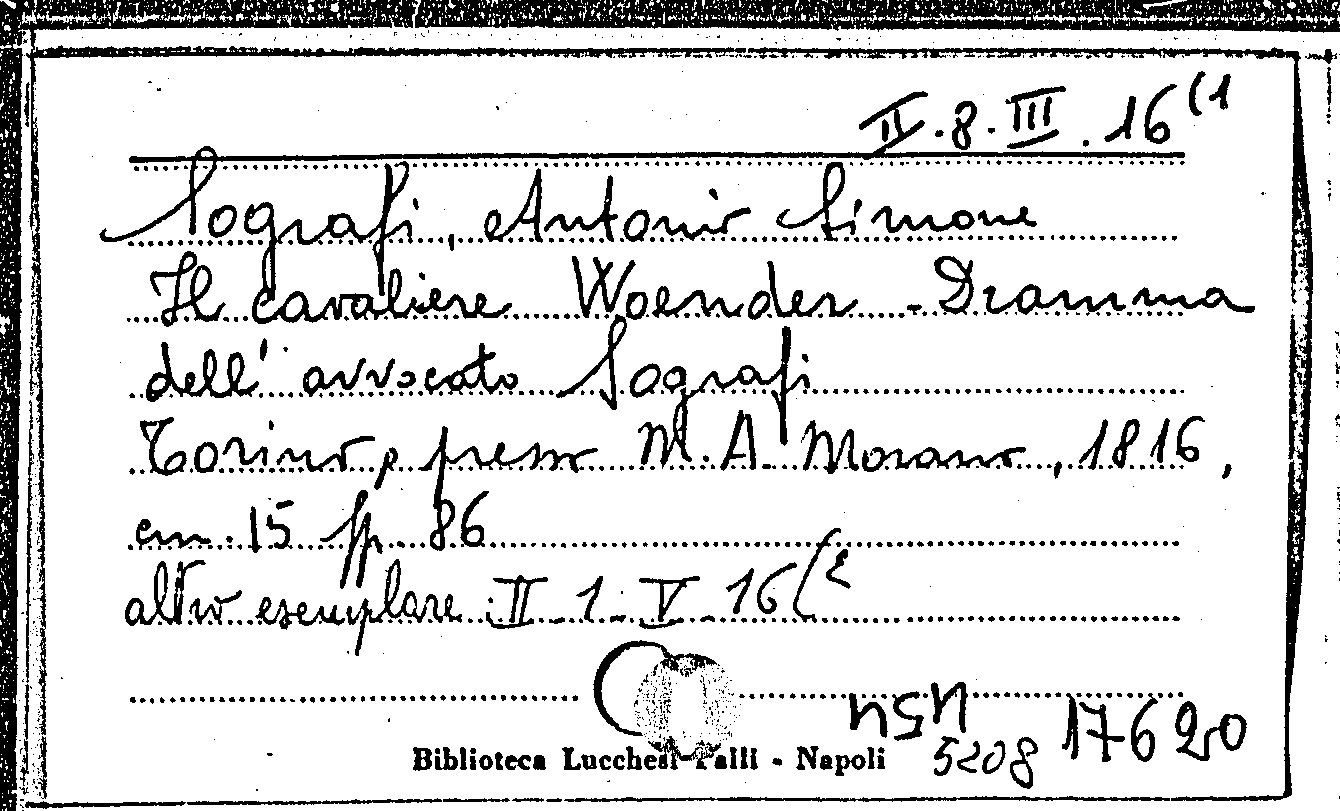 II.8.III.16(1
Sografi, Antonio Simone
Il cavaliere Woender - Dramma
dell' avvocato Sografi
Torino, presso M. A. Morano, 1816,
cm. 15 pp. 86
altro esemplare II-1-V-16(2
17620
5208
Biblioteca Lucchesi Palli - Napoli